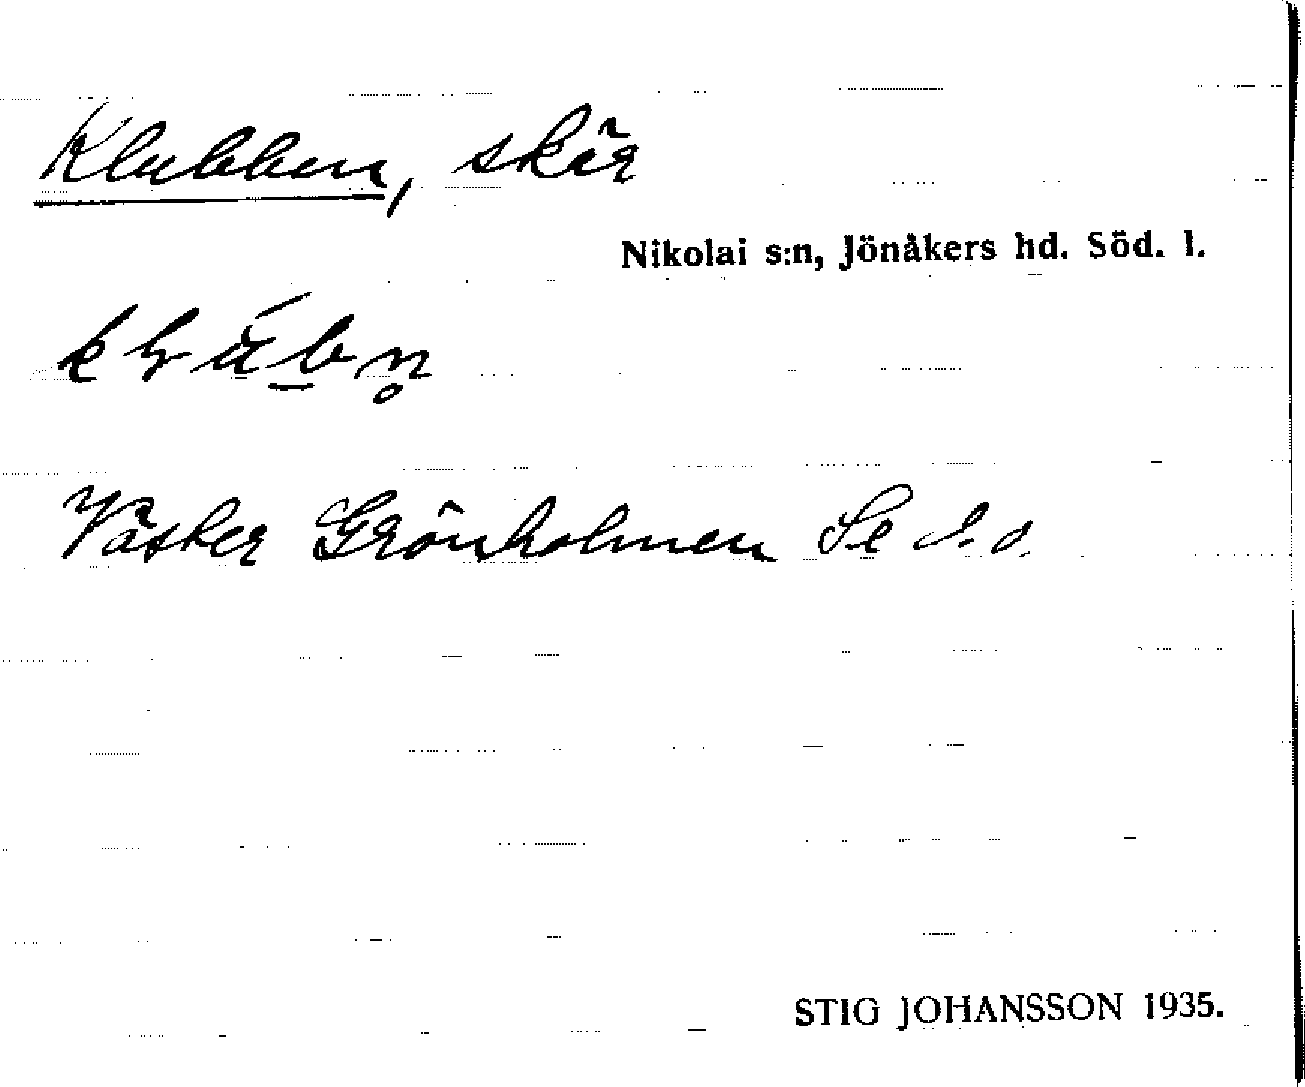 Klubben, skär
Nikolai s:n, Jönåkers hd. Söd. l.
Väster Grönholmen Se d.o.
STIG JOHANSSON 1935.